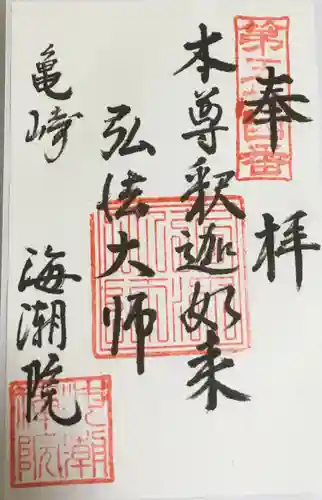 奉拝
第五十四番
本尊釈迦如来
弘法大师
亀崎 海潮院
海潮院